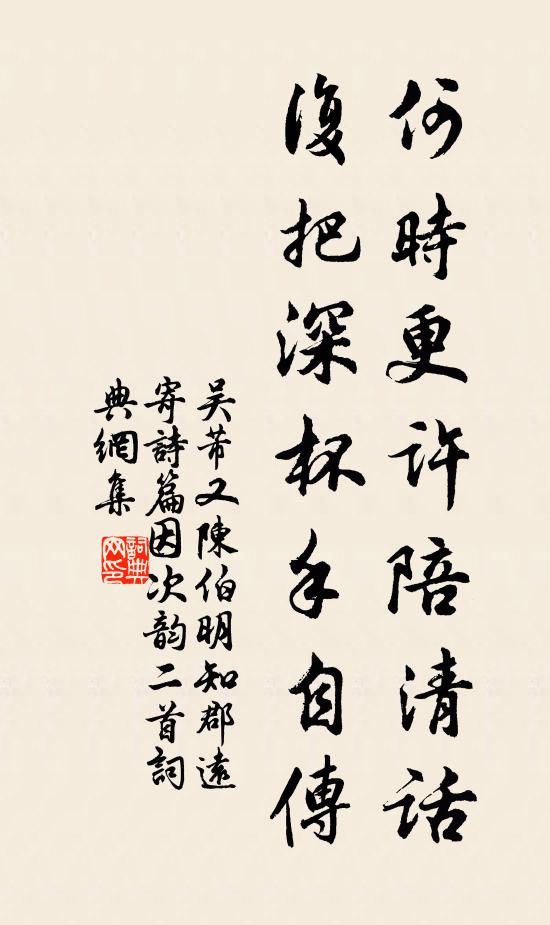 何時更許陪清話
復把深杯手自傳
吴芾又陳伯明知郡遠
寄詩篇因次韵二首詞
典網集
詞典網印